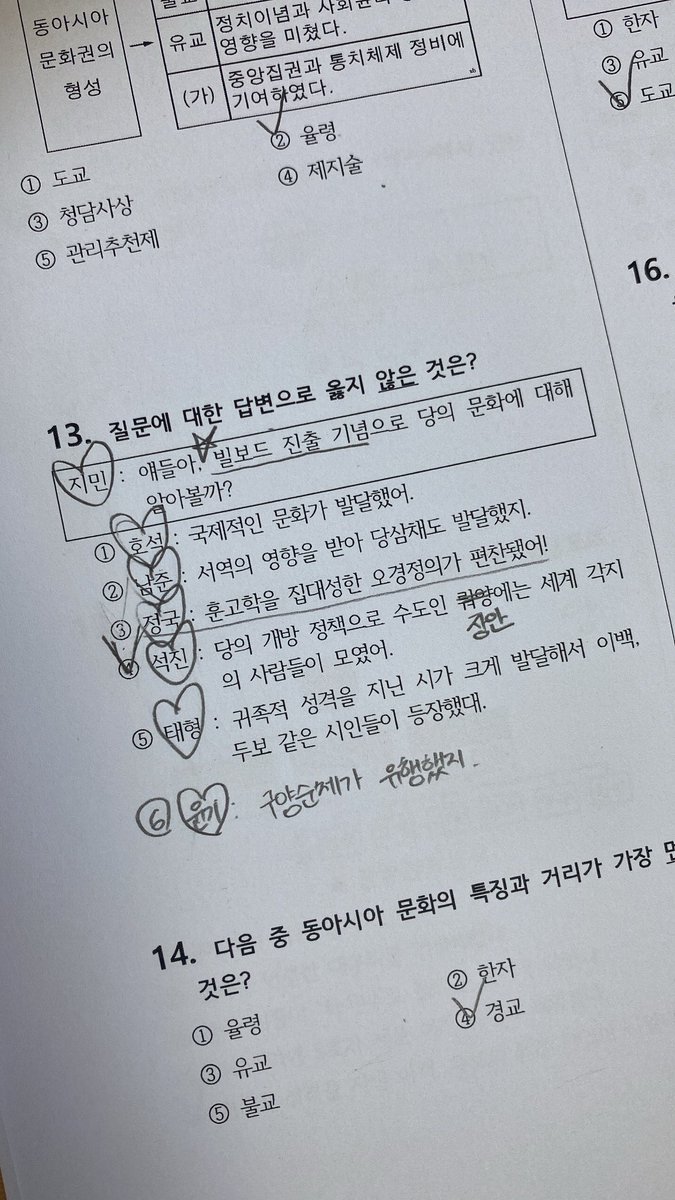 동아시아
문화권의
형성
유교
정치이념과
영향을 미쳤다.
(가)
중앙집권과 통치체제 정비에
기여하였다.
① 도교
② 율령
③ 청담사상
④ 제지술
⑤ 관리추천제
① 한자
③ 유교
⑤ 도교
16.
13. 질문에 대한 답변으로 옳지 않은 것은?
지민 : 얘들아, 빌보드 진출 기념으로 당의 문화에 대해
알아볼까?
① 호석 : 국제적인 문화가 발달했어.
② 남준 : 서역의 영향을 받아 당삼채도 발달했지.
③ 정국 : 훈고학을 집대성한 오경정의가 편찬됐어!
④ 석진 : 당의 개방 정책으로 수도인 뤄양에는 세계 각지
장안
의 사람들이 모였어.
⑤ 태형 : 귀족적 성격을 지닌 시가 크게 발달해서 이백,
두보 같은 시인들이 등장했대.
⑥ 윤기 : 구양순체가 유행했지.
14. 다음 중 동아시아 문화의 특징과 거리가 가장 먼
것은?
① 율령
② 한자
③ 유교
④ 경교
⑤ 불교